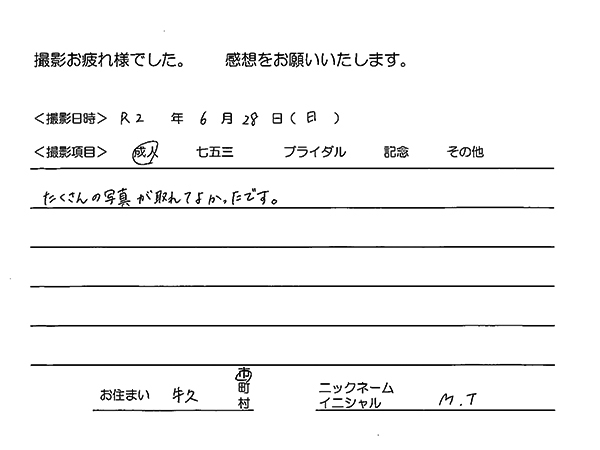 撮影お疲れ様でした。 感想をお願いいたします。
＜撮影日時＞ R2 年 6 月 28 日 ( 日 )
＜撮影項目＞ 成人 七五三 ブライダル 記念 その他
たくさんの写真が取れてよかったです。
お住まい 牛久 市 町 村
ニックネーム
イニシャル M.T